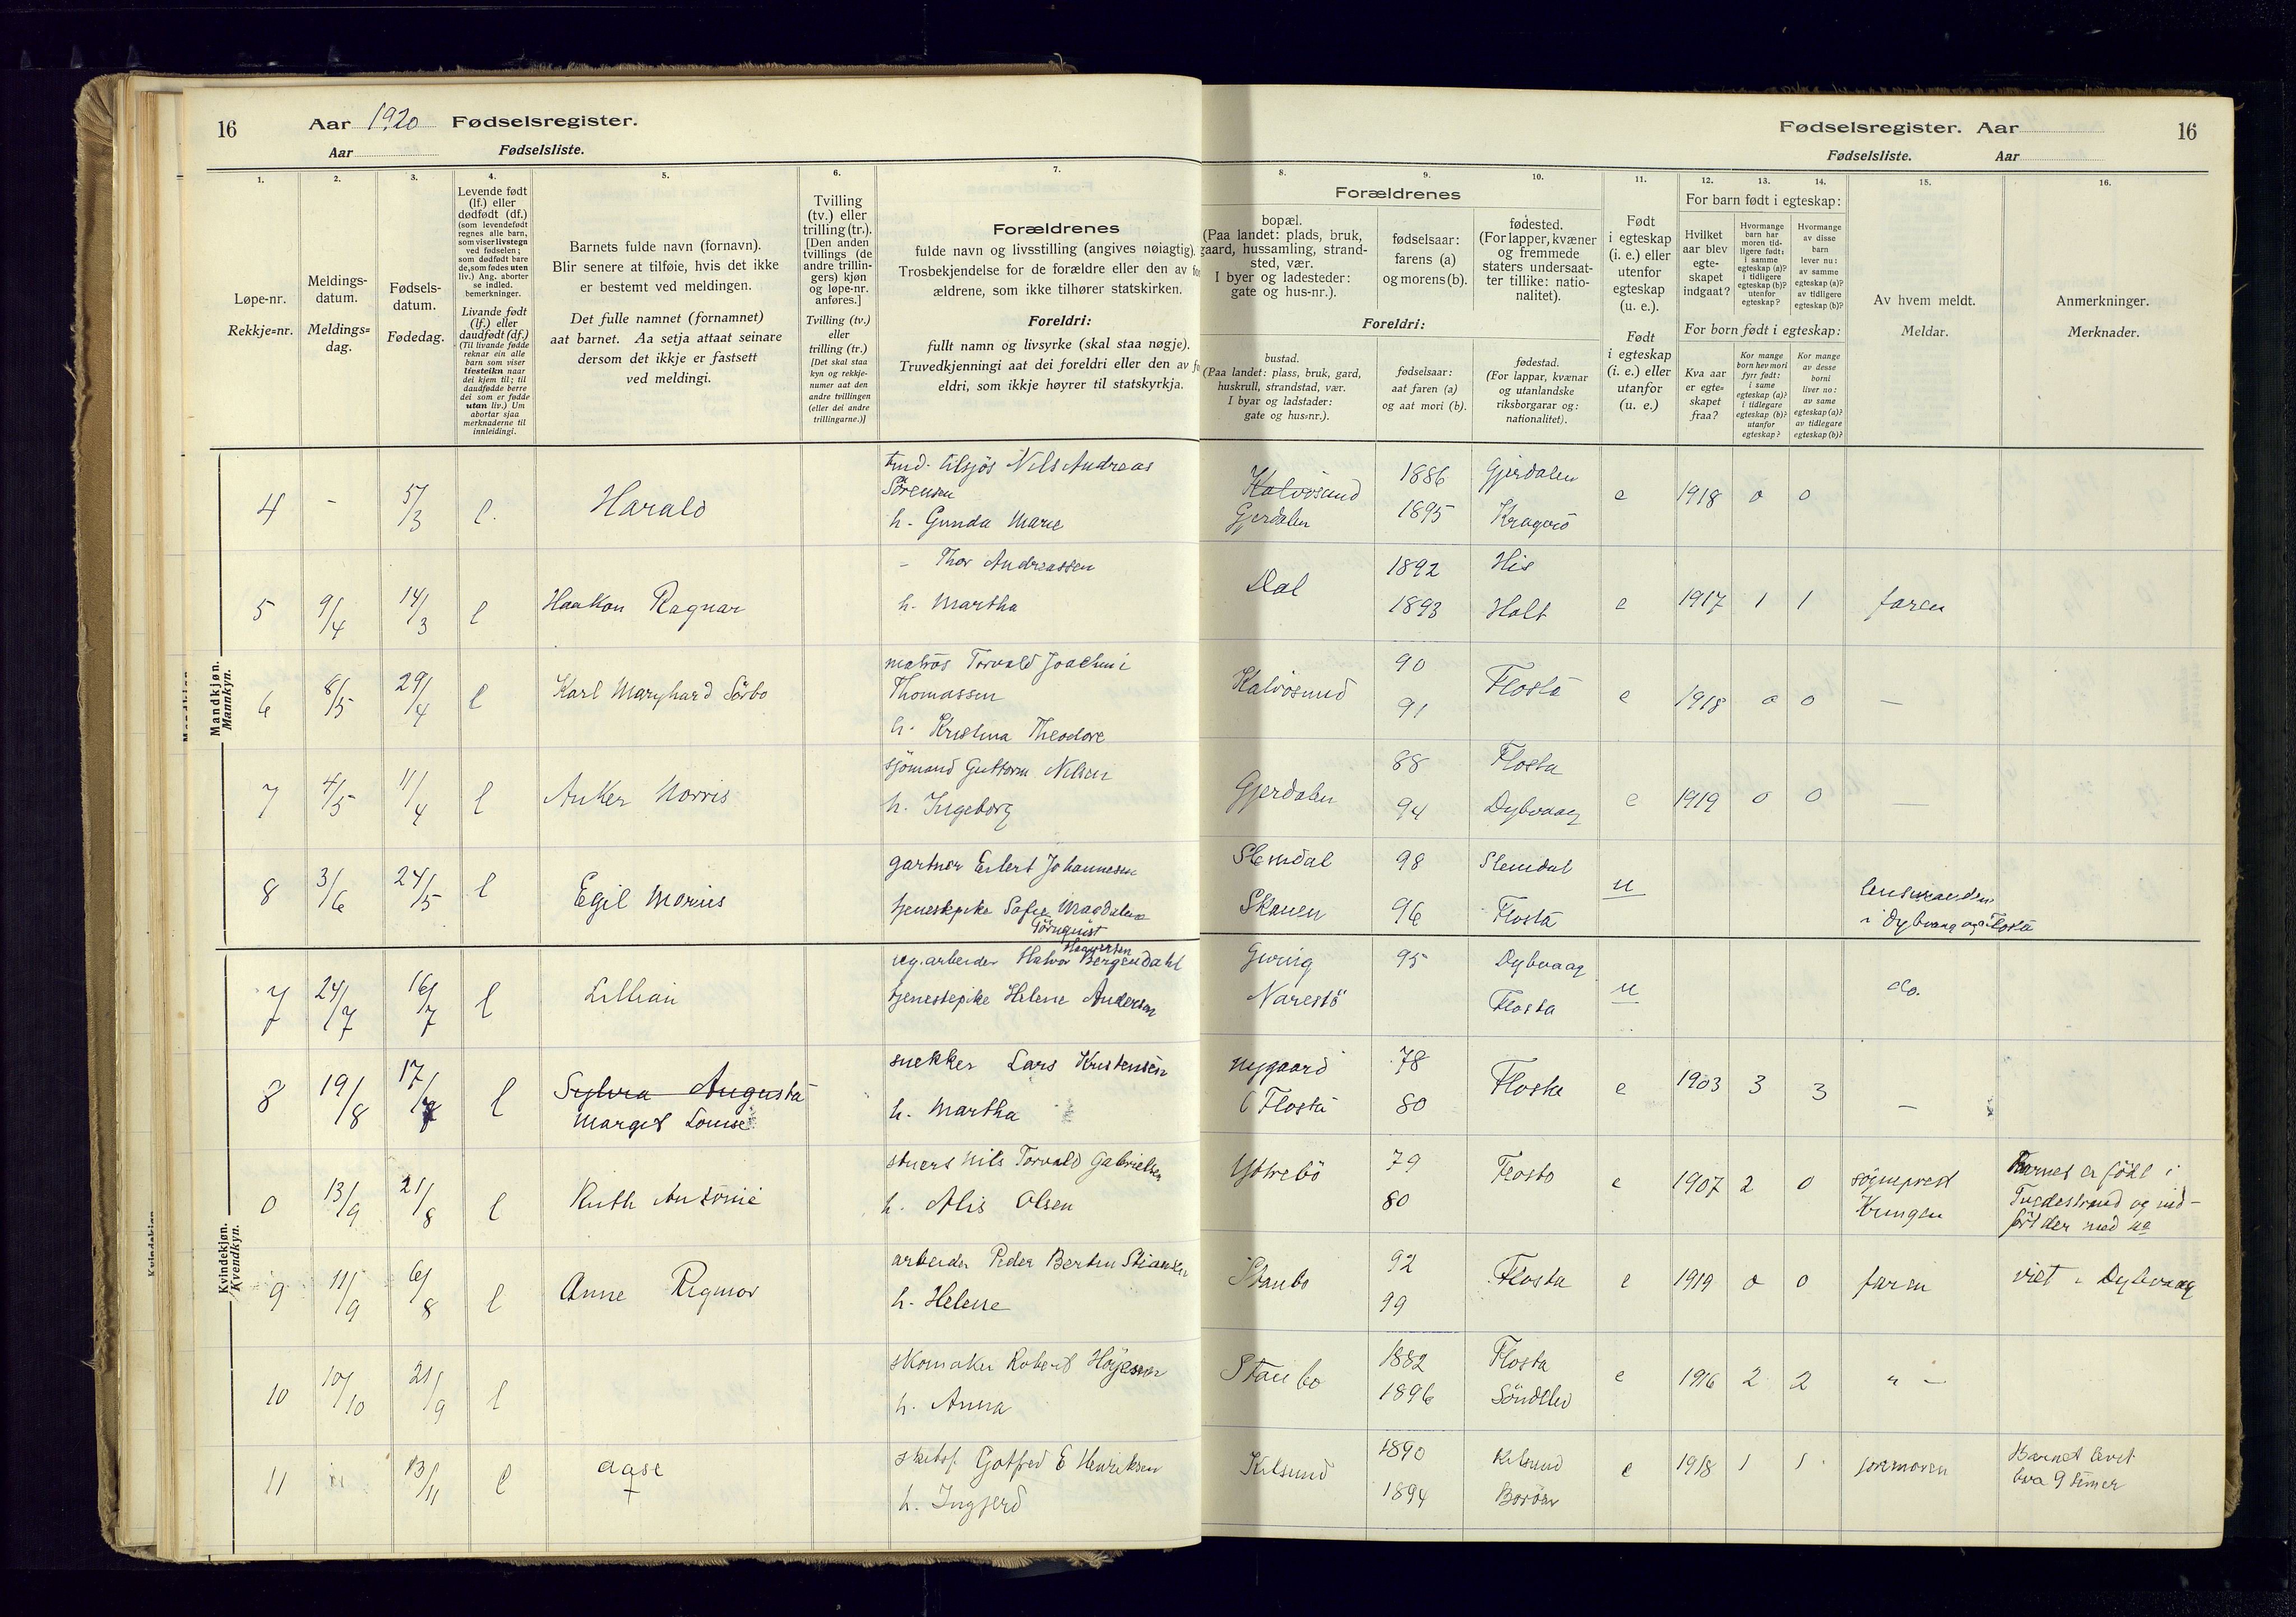 16
Aar 1920 Fødselsregister.
Aar
Fødselsliste.
Fødselsregister. Aar
16
Fødselsliste.
Aar
1.
Løpe-nr.
Rekkje=nr.
2.
Meldings-
datum.
Meldings=
dag.
3.
Fødsels-
datum.
Fødedag.
4.
Levende født
(lf.) eller
dødfødt (df.)
(som levendefødt
regnes alle barn,
som viser livstegn
ved fødselen;
som dødfødt bare
de, som fødes uten
liv.) Ang. aborter
se indled.
bemerkninger.
Livande født
(lf.) eller
daudfødt (df.)
(Til livande fødde
reknar ein alle
barn som viser
livsteikn naar
dei kjem til; til
daudfødde berre
dei som er fødde
utan liv.) Um
abortar sjaa
merknaderne til
innleidingi.
5.
Barnets fulde navn (fornavn).
Blir senere at tilføie, hvis det ikke
er bestemt ved meldingen.
Det fulle namnet (fornamnet)
aat barnet. Aa setja attaat seinare
dersom det ikkje er fastsett
ved meldingi.
6.
Tvilling
(tv.) eller
trilling (tr.).
[Den anden
tvillings (de
andre trillin-
gers) kjøn
og løpe-nr.
anføres.]
Tvilling (tv.)
eller
trilling (tr.)
[Det skal staa
kyn og rekkje-
numer aat den
andre tvillingen
(eller dei andre
trillingarne.)]
7.
Forældrenes
fulde navn og livsstilling (angives nøiagtig).
Trosbekjendelse for de forældre eller den av for
ældrene, som ikke tilhører statskirken.
Foreldri:
fullt namn og livsyrke (skal staa nøgje).
Truvedkjenningi aat dei foreldri eller den av
eldri, som ikkje høyrer til statskyrkja.
8.
Forældrenes
bopæl.
(Paa landet: plads, bruk,
gaard, hussamling, strand-
sted, vær.
I byer og ladesteder:
gate og hus-nr.).
Foreldri:
bustad.
(Paa landet: plass, bruk, gard,
huskrull, strandstad, vær.
I byar og ladstader:
gate og hus=nr.).
9.
fødselsaar:
farens (a)
og morens (b).
fødselsaar:
aat faren (a)
og aat mori (b).
10.
fødested.
(For lapper, kvæner
og fremmede
staters undersaat-
ter tillike: natio-
nalitet).
fødestad.
(For lappar, kvænar
og utanlandske
riksborgarar og:
nationalitet).
11.
Født
i egteskap
(i. e.) eller
utenfor
egteskap
(u. e.).
Født
i egteskap
(i. e.) eller
utanfor
(u. e.)
12.
13.
14.
For barn født i egteskap:
Hvilket
aar blev
egte-
skapet
indgaat?
Hvormange
barn har
moren tid-
ligere født:
i samme
egteskap (a)?
i tidligere
egteskap (b)?
utenfor
egteskap?
Hvormange
av disse
barn
lever nu:
av samme
egteskap (a)?
av tidligere
egteskap (b)?
For born født i egteskap:
Kva aar
er egte=
skapet
fraa?
Kor mange
born hev mori
fyrr født:
i same
egteskap (a)?
i tidlegare
egteskap (b)?
utanfor
egteskap?
Kor mange
av desse
borni
liver no:
av same
egteskap (a)?
av tidlegare
egteskap (b)?
15.
Av hvem meldt.
Meldar.
16.
Anmerkninger.
Merknader.
Mandkjøn.
Mannkyn.
4 - 5/3 l. Harald
Nils Andreas
Sørensen
h. Gunda Marie
Kalvösund
Gjerdalen
1886
1895
Gjerdalen
Kragerö
e 1918 0 0
5 9/4 14/3 l Haakon Ragnar
- Thor Andreassen
h. Martha
Dal
1892
1893
His
Holt
e 1917 1 1 faren
6 8/5 29/4 l Karl Maryhard Sörbo
matros Torvald Joachim
Thomassen
h. Kristina Theodore
Kalvösund
90
91
Flosta
e 1918 0 0 —
7 4/5 11/4 l Anker Norris
sjömand Guttorm Nilsen
h. Ingeborg
Gjerdalen
88
94
Flosta
Dybvaag
e 1919 0 0 —
8 3/6 24/5 l Egil Marius
gartner Eilert Johannesen
tjenestepike Sofie Magdalene
Törnquist
Slemdal
Skauen
98
96
Slemdal
Flosta
u
lensmanden
i Dybvaag og Flosta
Kvindekjøn.
Kvendkyn.
7 24/7 16/7 l Lillian
arbeider Halvor Bergendahl
tjenestepike Helene Andersen
Gjeving
Narestö
95
Dybvaag
Flosta
u
do.
8 19/8 17/7 l Sylvia Augusta
Margit Louise
snekker Lars Kristensen
h. Martha
Nygaard
i Flosta
78
80
Flosta
e 1903 3 3 —
0 13/9 21/8 l Ruth Antonie
stuert Nils Torvald Gabrielsen
h. Alis Olsen
Ytrebö
79
80
Flosta
e 1907 2 0
sogneprest
Barnet er född i
Tvedestrand og ind-
fört der med no
9 11/9 6/8 l Anne Rigmor
arbeider Peder Bertin Stiansen
h. Helene
Staubo
92
99
Flosta
e 1919 0 0 faren
viet i Dybvaag
10 10/10 21/9 l
skomaker Robert Høyesen
h. Anna
Staubo
1882
1896
Flosta
Söndeled
e 1916 2 2 " —
11 13/11 l Aase
†
Gotfred E Henriksen
h. Ingjerd
Kilsund
1890
1894
Kilsund
Borøen
e 1918 1 1 jormoren
Barnet levet
bra 9 timer